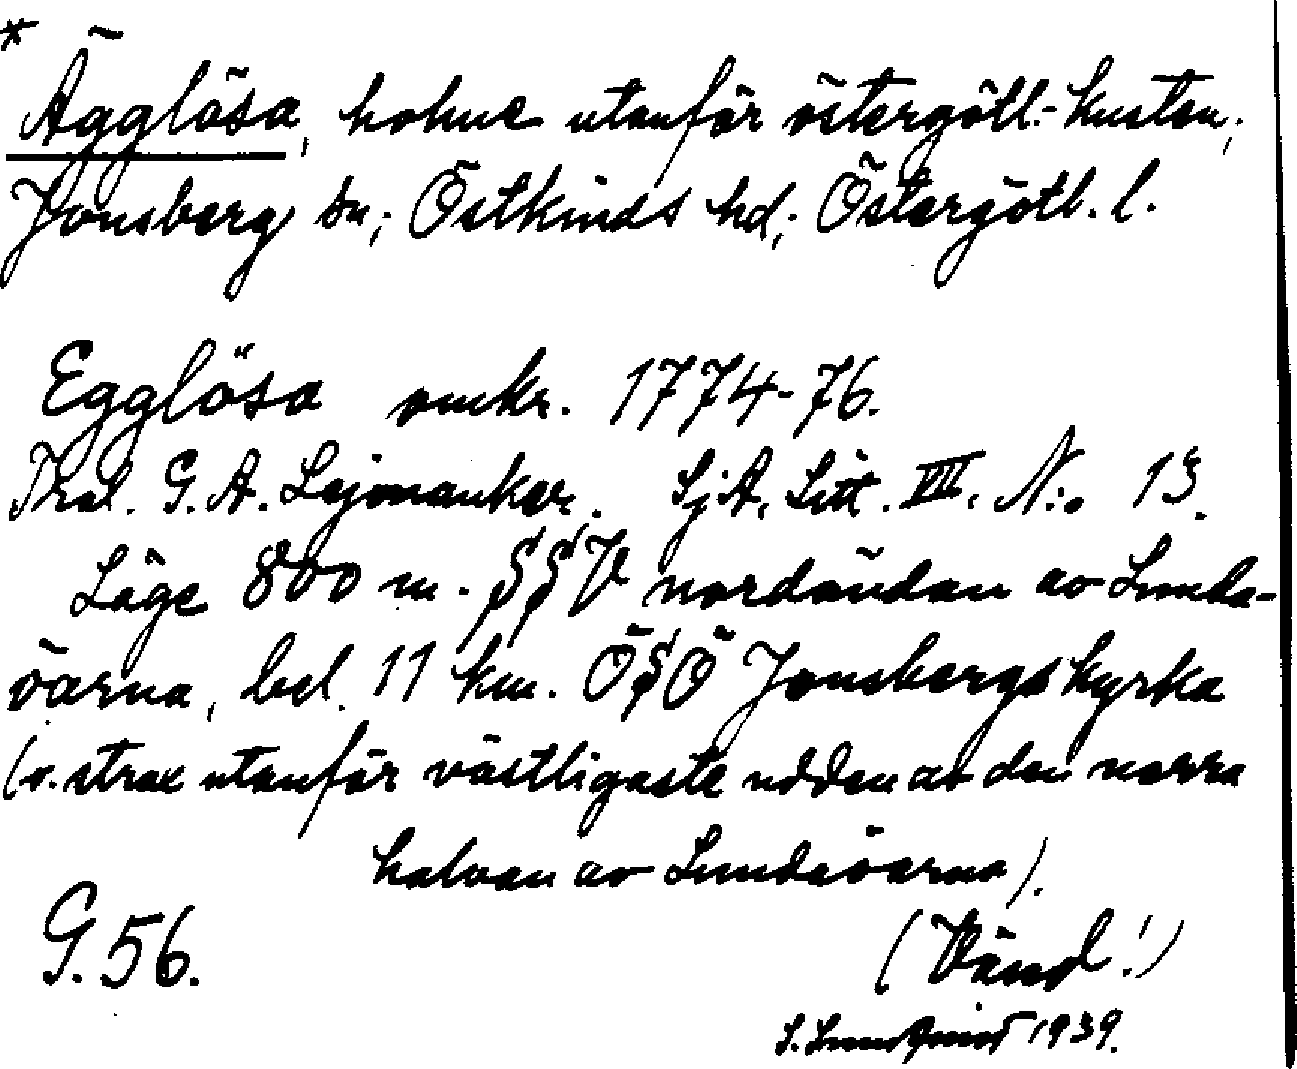 *
Ägglösa, holme utanför östergötl.-kusten,
Jonsberg sn, Östkinds hd, Östergötl. l.
Egglösa omkr. 1774-76.
G. A. Lejonanker. SjA, Litt. VII, N:o 13.
Läge 800 m. SSV nordändan av Lunda-
öarna, bel. 11 km. ÖSÖ Jonsbergs kyrka
(o. strax utanför västligaste udden av den norra
halvan av Lundaöarna).
G. 56.
(Vänd!)
S. Lundqvist 1939.